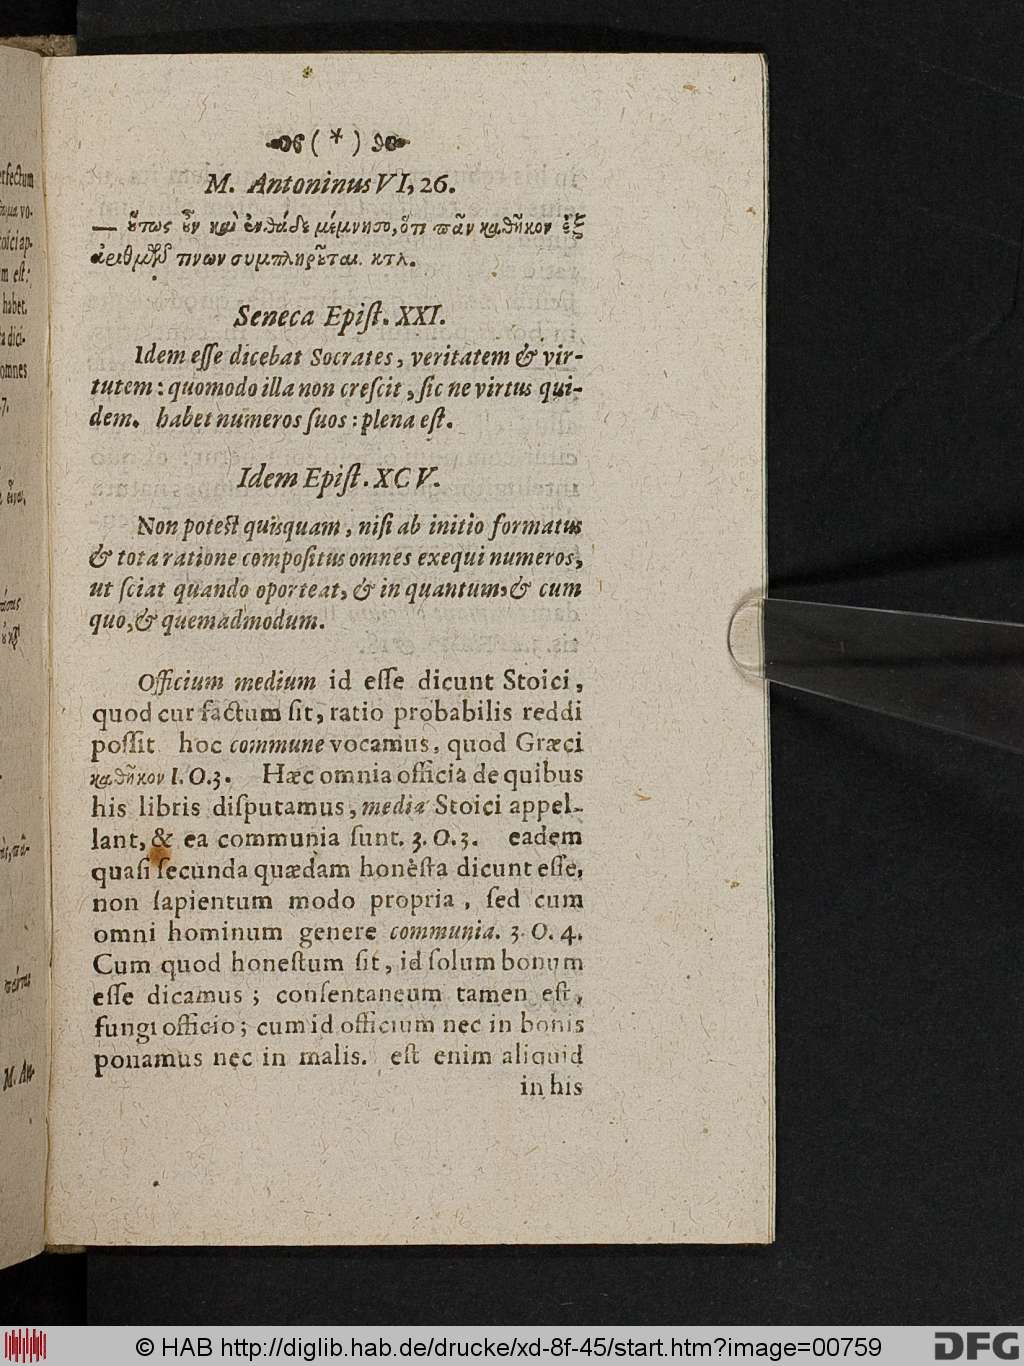 ( * )
M. Antoninus VI, 26.
— ὅτως ȣ̓ν καὶ ἐνθάδε μέμνησο, ὅτι πᾶν καθῆκον ἐξ
ἀριθμῶν τινων συμπληρȣ͂ται. κτλ.
Seneca Epiſt. XXI.
Idem eſſe dicebat Socrates, veritatem & vir-
tutem: quomodo illa non creſcit, ſic ne virtus qui-
dem. habet numeros ſuos: plena eſt.
Idem Epiſt. XCV.
Non poteſt quisquam, niſi ab initio formatus
& tota ratione compoſitus omnes exequi numeros,
ut ſciat quando oporteat, & in quantum, & cum
quo, & quemadmodum.
Officium medium id eſſe dicunt Stoici,
quod cur factum ſit, ratio probabilis reddi
poſſit hoc commune vocamus, quod Græci
καθῆκον I. O. 3. Hæc omnia officia de quibus
his libris diſputamus, media Stoici appel-
lant, & ea communia ſunt. 3. O. 3. eadem
quaſi ſecunda quædam honeſta dicunt eſſe,
non ſapientum modo propria, ſed cum
omni hominum genere communia. 3. O. 4.
Cum quod honeſtum ſit, id ſolum bonum
eſſe dicamus; conſentaneum tamen eſt,
fungi officio; cum id officium nec in bonis
ponamus nec in malis. eſt enim aliquid
in his
© HAB http://diglib.hab.de/drucke/xd-8f-45/start.htm?image=00759
DFG